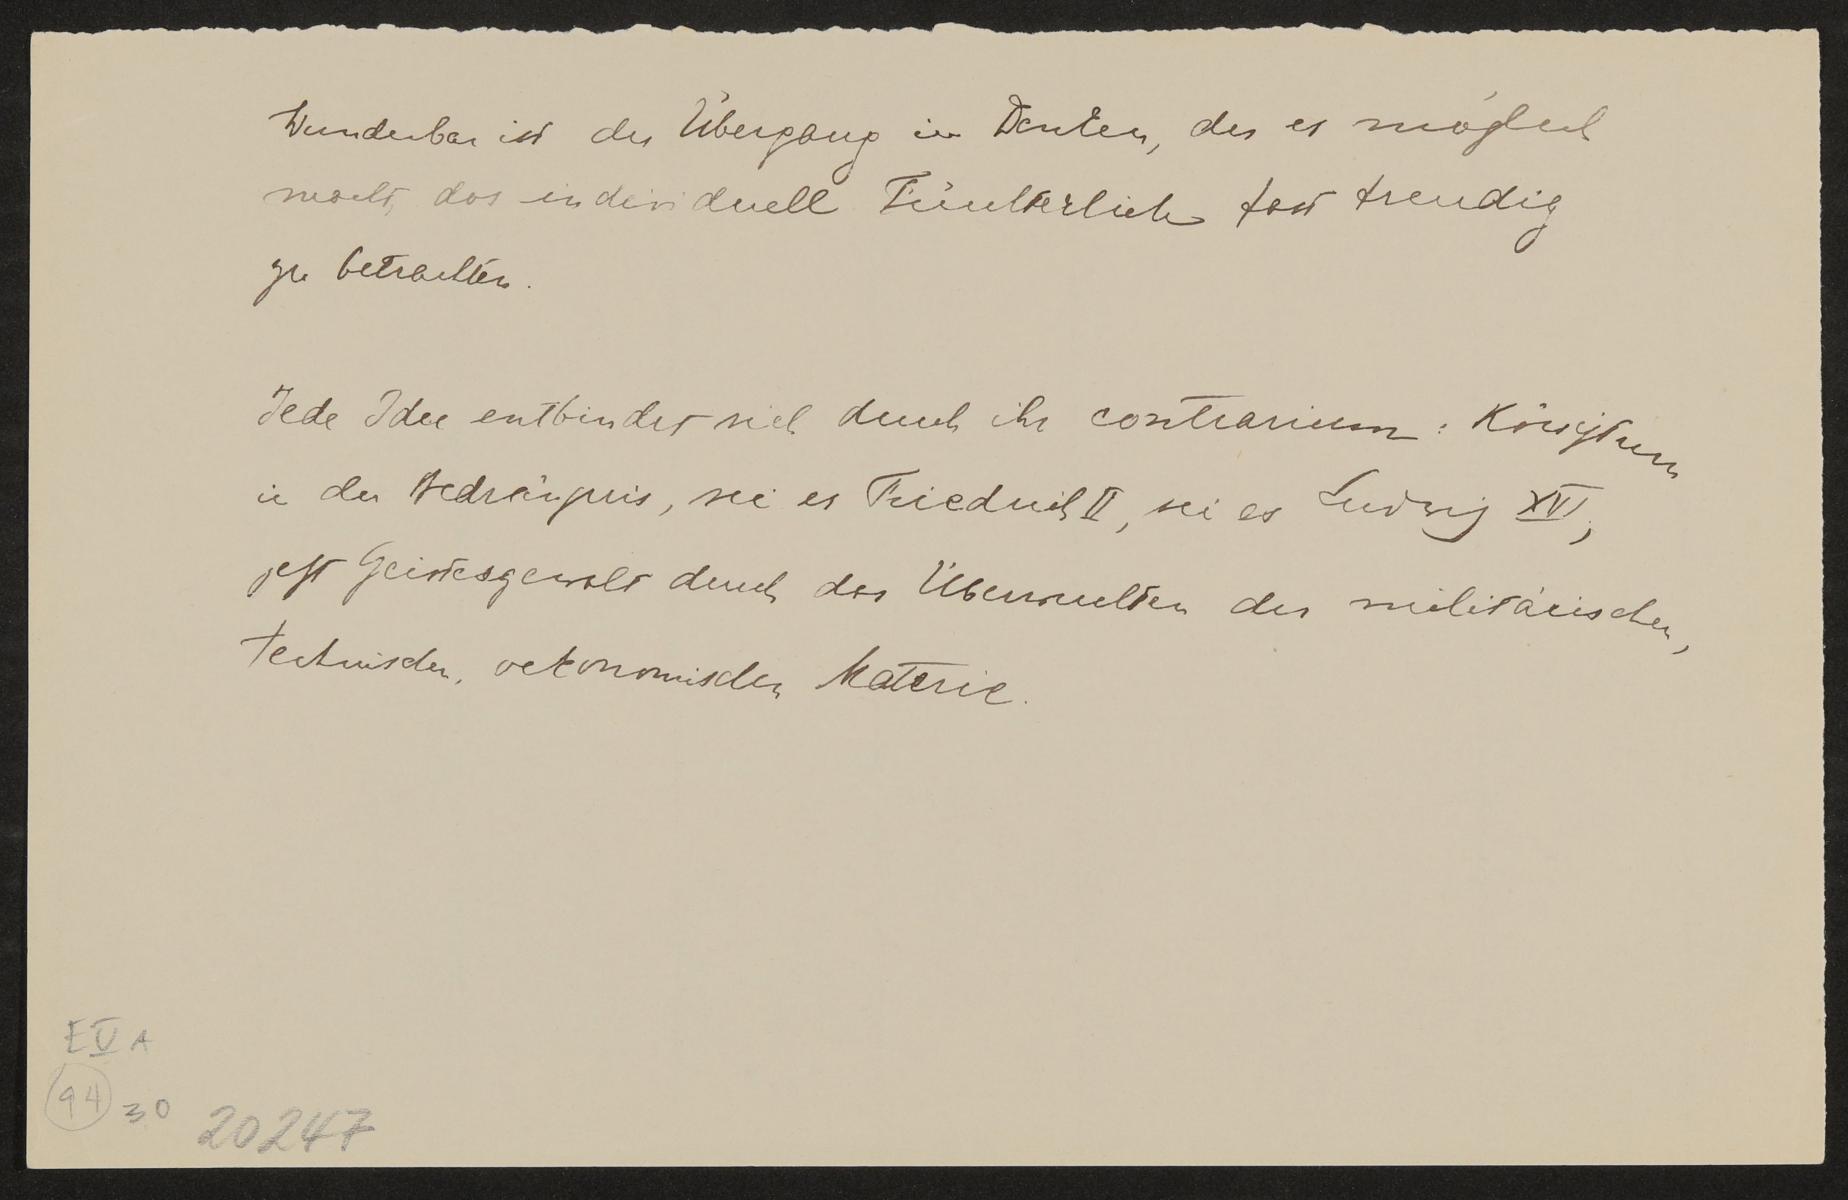 Wunderbar ist der Übergang in Denken, der es möglich
macht, das individuell Fürchterliche fast freudig
zu betrachten.
Jede Idee entbindet sich durch ihr contrarium: Königtum
in der Bedrängnis, sei es Friedrich II, sei es Ludwig XVI,
jetzt Geistesgewalt durch das Überwuchten der militärischen,
technischen, oekonomischen Materie.
E V A
94 30 20247